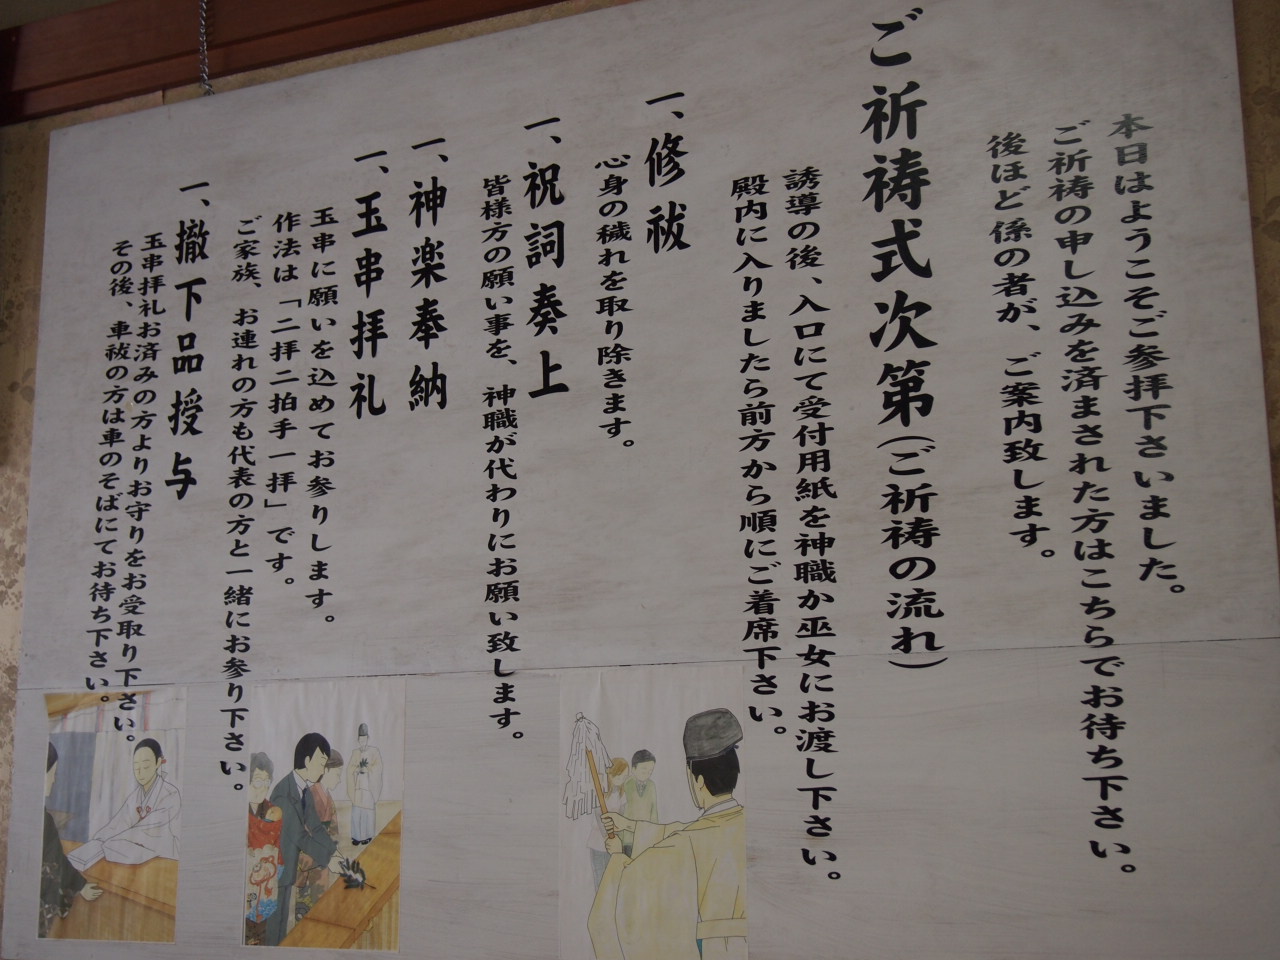 本日はようこそご参拝下さいました。
ご祈祷の申し込みを済まされた方はこちらでお待ち下さい。
後ほど係の者が、ご案内致します。
ご祈祷式次第(ご祈祷の流れ)
誘導の後、入口にて受付用紙を神職か巫女にお渡し下さい。
殿内に入りましたら前方から順にご着席下さい。
一、修祓
心身の穢れを取り除きます。
一、祝詞奏上
皆様方の願い事を、神職が代わりにお願い致します。
一、神楽奉納
一、玉串拝礼
玉串に願いを込めてお参りします。
作法は「二拝二拍手一拝」です。
ご家族、お連れの方も代表の方と一緒にお参り下さい。
一、撤下品授与
玉串拝礼お済みの方よりお守りをお受取り下さい。
その後、車祓の方は車のそばにてお待ち下さい。